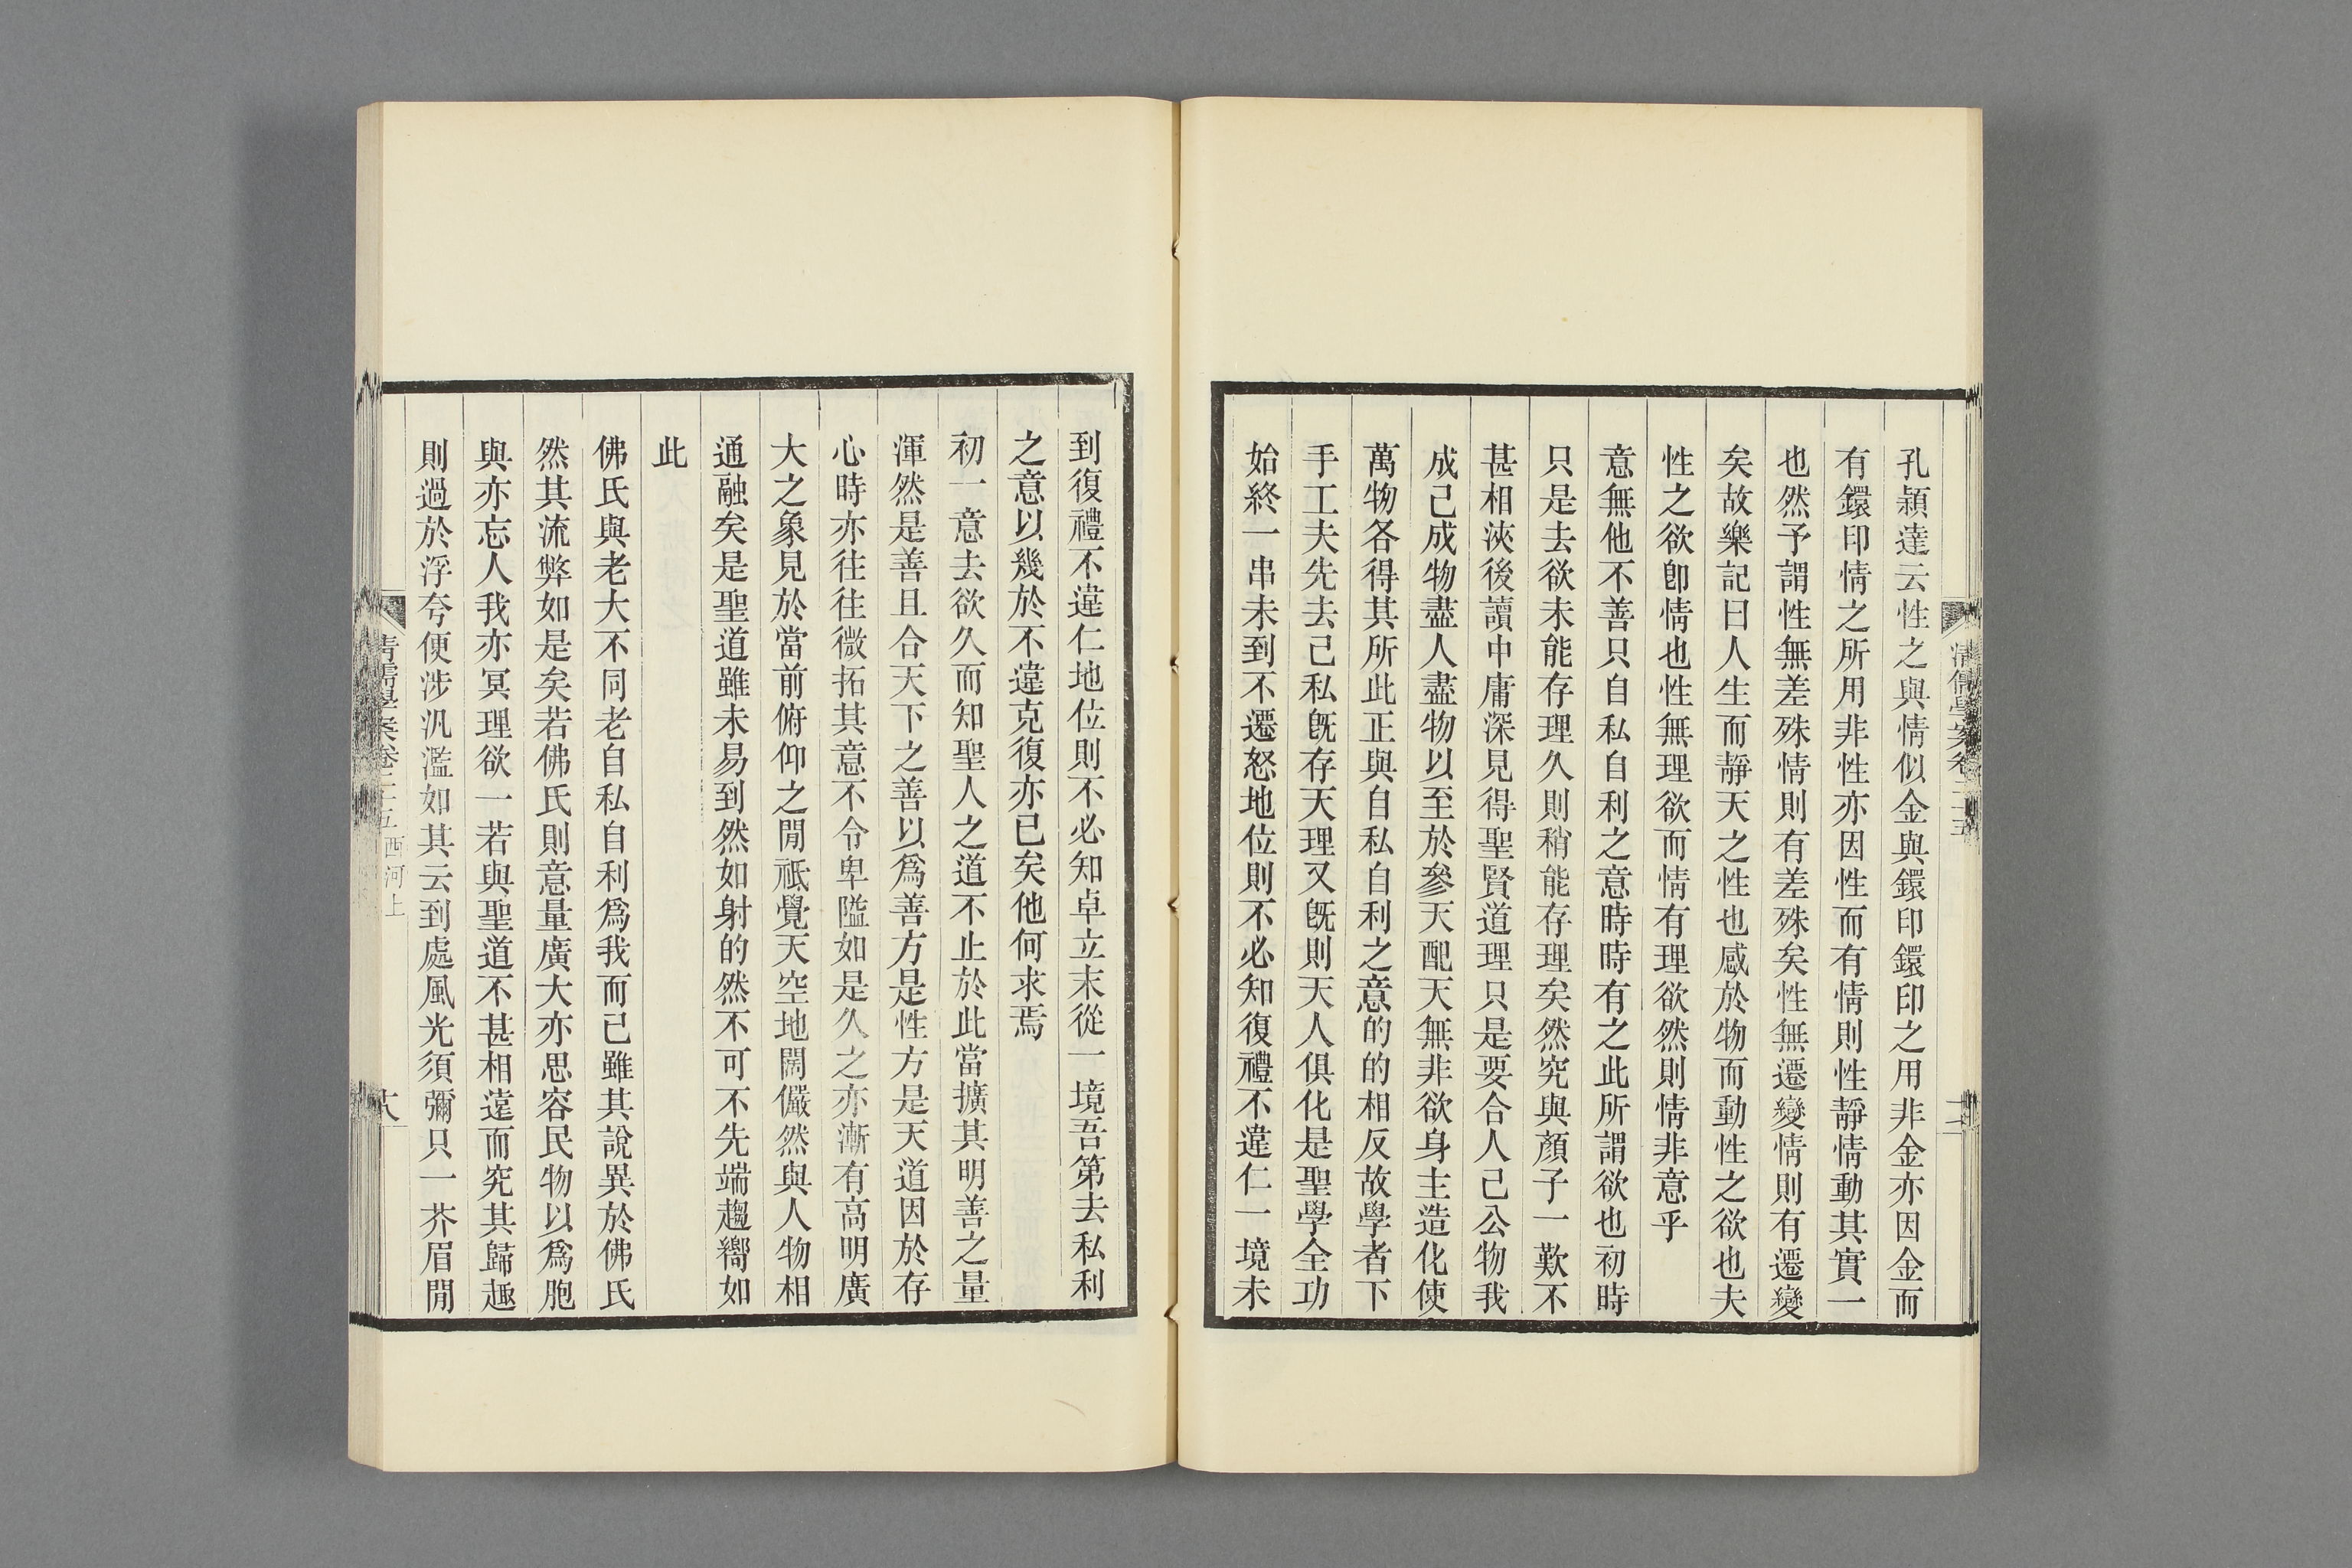 孔穎達云性之與情似金與鐶印鐶印之用非金亦因金而
有鐶印情之所用非性亦因性而有情則性靜情動其實一
也然予謂性無差殊情則有差殊矣性無遷變情則有遷變
矣故樂記曰人生而靜天之性也感於物而動性之欲也夫
性之欲卽情也性無理欲而情有理欲然則情非意乎
意無他不善只自私自利之意時時有之此所謂欲也初時
只是去欲未能存理久則稍能存理矣然究與顏子一歎不
甚相浹後讀中庸深見得聖賢道理只是要合人己公物我
成己成物盡人盡物以至於參天配天無非欲身主造化使
萬物各得其所此正與自私自利之意的的相反故學者下
手工夫先去己私旣存天理又旣則天人俱化是聖學全功
始終一串未到不遷怒地位則不必知復禮不違仁一境未
到復禮不違仁地位則不必知卓立末從一境吾第去私利
之意以幾於不違克復亦已矣他何求焉
初一意去欲久而知聖人之道不止於此當擴其明善之量
渾然是善且合天下之善以爲善方是性方是天道因於存
心時亦往往微拓其意不令卑隘如是久之亦漸有高明廣
大之象見於當前俯仰之閒祗覺天空地闊儼然與人物相
通融矣是聖道雖未易到然如射的然不可不先端趨嚮如
此
佛氏與老大不同老自私自利爲我而已雖其說異於佛氏
然其流弊如是矣若佛氏則意量廣大亦思容民物以爲胞
與亦忘人我亦冥理欲一若與聖道不甚相遠而究其歸趣
則過於浮夸便涉汎濫如其云到處風光須彌只一芥眉閒
清儒學案卷二十五 西河上